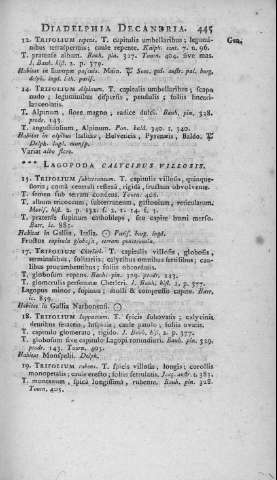 DIADELPHIA DECANDRIA. 445
12. TRIFOLIUM repens. T. capitulis umbellaribus; legumi-
nibus tetraspermis; caule repente. Kniph. cent. 7. n. 96.
T. pratense album. Bauh. pin. 327. Tourn. 404. sive mas.
J. Bauh. hist. 2. p. 379.
Habitat in Europæ pascuis. Maio.
delph. ingl. lith. paris.
14. TRIFOLIUM Alpinum. T. capitulis umbellaribus; scapo
nudo; leguminibus dispermis, pendulis; foliis lineari-
lanceolatis.
T. Alpinum, flore magno, radice dulci. Bauh. pin. 328.
prodr. 143.
T. angustifolium, Alpinum. Pon. bald. 340. t. 340.
Habitat in alpibus Italiæ, Helvetiæ, Pyrenæis, Baldo.
Delph. ingl. monsp.
Variat albo flore.
*** LAGOPODA CALYCIBUS VILLOSIS.
15. TRIFOLIUM subterraneum. T. capitulis villosis, quinque-
floris; coma centrali reflexa, rigida, fructum obvolvente.
T. semen sub terram condens. Tourn. 406.
T. album tricoccum, subterraneum, reticulatum.
Moris. hist. 2. p. 138. s. 2. t. 14. f. 5.
T. pratense supinum
Barr. ic. 881.
Habitat in Gallia, Italia. Paris. burg. ingl.
Fructus capitulis globosis, terram
17. TRIFOLIUM Cherleri. T. capitulis villosis, globosis,
terminalibus, solitariis; calycibus omnibus fertilibus; cau-
libus procumbentibus; foliis obcordatis.
T. globosum repens. Bauh. pin. 329. prodr. 143.
T. glomerulis personatæ Cherleri. J. Bauh. hist. 2. p. 377.
Lagopus minor, supinus; Barr.
ic. 859.
Habitat in Gallia Narbonensi.
18. TRIFOLIUM lappaceum. T. spicis subovatis; calycinis
dentibus setaceis, hispidis; caule patulo; foliis ovatis.
T. capitulo glomerato, rigido. J. Bauh. hist. 2. p. 377.
T. globosum sive capitulo Lagopi rotundiori. Bauh. pin. 329.
prodr. 143. Tourn. 405.
Habitat Monspelii. Delph.
19. TRIFOLIUM rubens. T. spicis villosis, longis; corollis
monopetalis; caule erecto; foliis serrulatis. Jacq. austr. t. 385.
T. montanum, spica longissima, rubente. Bauh. pin. 328.
Tourn. 405.